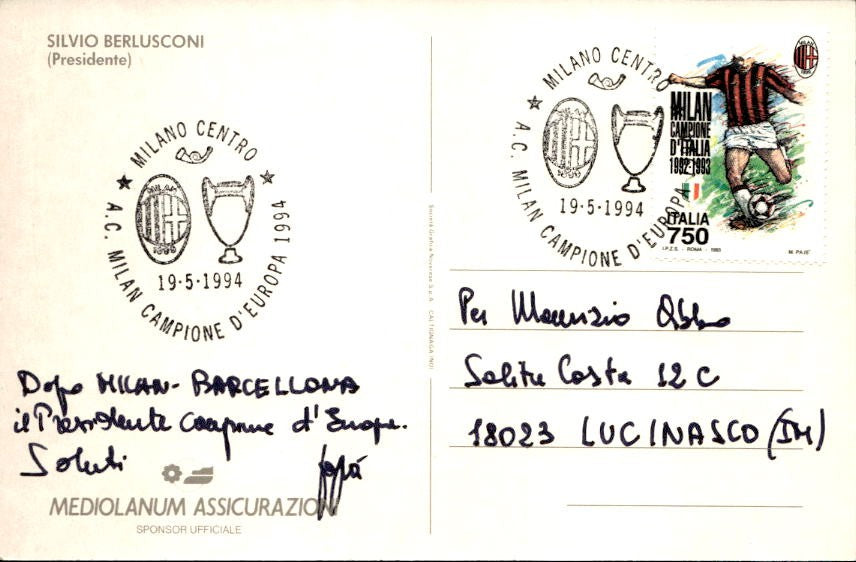 SILVIO BERLUSCONI
(Presidente)
MILANO CENTRO
1899
19-5-1994
A.C. MILAN CAMPIONE D'EUROPA 1994
Dopo MILAN-BARCELLONA
il Presidente Campione d'Europa.
Saluti
MEDIOLANUM ASSICURAZIONI
SPONSOR UFFICIALE
Società Grafica Novarese S.p.A. CALTIGNAGA (NO)
MILANO CENTRO
1899
19-5-1994
A.C. MILAN CAMPIONE D'EUROPA
MILAN
1899
MILAN
CAMPIONE
D'ITALIA
1992-1993
ITALIA
750
I.P.Z.S. - ROMA - 1993
Per Maurizio
Salita Costa 12 C
18023 LUCINASCO (IM)